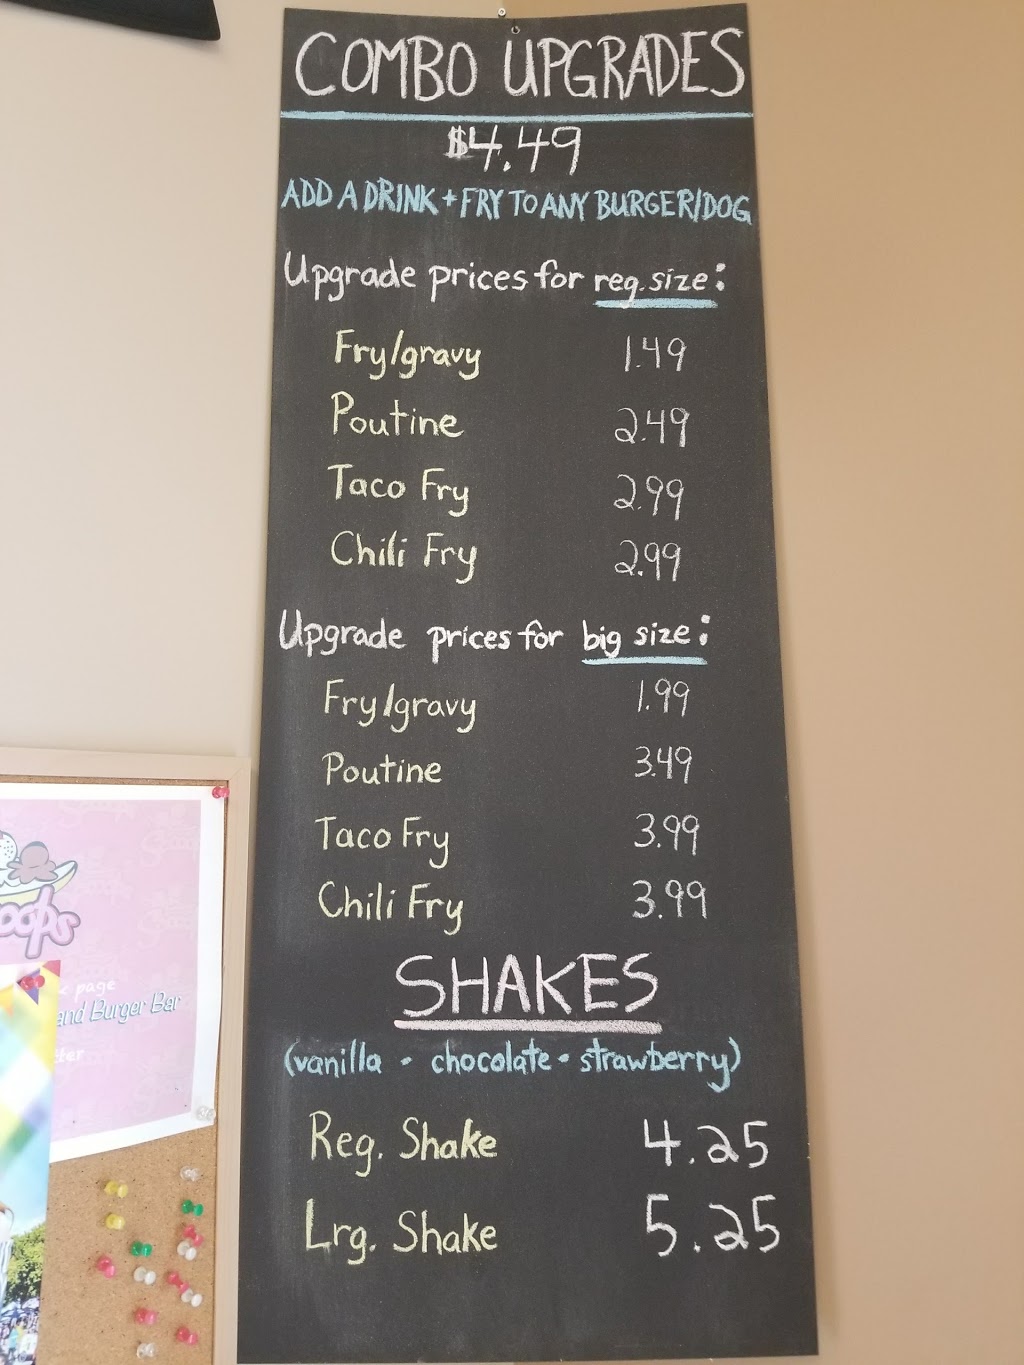 COMBO UPGRADES
$4.49
ADD A DRINK + FRY TO ANY BURGER/DOG
Upgrade prices for reg. size:
Fry/gravy 1.49
Poutine 2.49
Taco Fry 2.99
Chili Fry 2.99
Upgrade prices for big size:
Fry/gravy 1.99
Poutine 3.49
Taco Fry 3.99
Chili Fry 3.99
SHAKES
(vanilla · chocolate · strawberry)
Reg. Shake 4.25
Lrg. Shake 5.25
page
and Burger Bar